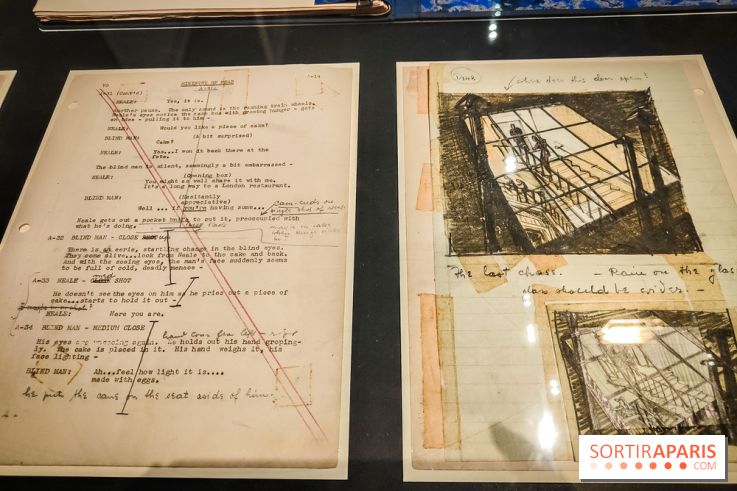 MINISTRY OF FEAR
A-31 (Cont'd)
NEALE: Yes, it is.
Another pause. The only sound is the rushing train wheels.
Neale's eyes notice the cake box with growing hunger - gets
an idea - pulling it to him -
NEALE: Would you like a piece of cake?
BLIND MAN: (A bit surprised)
Cake?
NEALE: Yes...I won it back there at the
fete.
The blind man is silent, seemingly a bit embarrassed -
NEALE: (Opening box)
You might as well share it with me.
It's a long way to a London restaurant.
BLIND MAN: (Hesitantly
appreciative)
Well ... if you're having some...
Neale gets out a pocket knife to cut it, preoccupied with
what he's doing.
A-32 BLIND MAN - CLOSE SHOT
There is an eerie, startling change in the blind eyes.
They come alive...look from Neale to the cake and back.
And with the seeing eyes, the man's face suddenly seems
to be full of cold, deadly menace -
A-33 NEALE - med SHOT
He doesn't see the eyes on him as he pries out a piece of
cake...starts to hold it out -
NEALE: Here you are.
A-34 BLIND MAN - MEDIUM CLOSE
hand comes from left - right
His eyes are unseeing again. He holds out his hand groping-
ly. The cake is placed in it. His hand weighs it, his
face lighting -
BLIND MAN: Ah...feel how light it is....
made with eggs.
he puts the cane on the seat aside of him.
does this door open?
The last chase. - Rain on the glas
should be wider -
SORTIRAPARIS
.COM